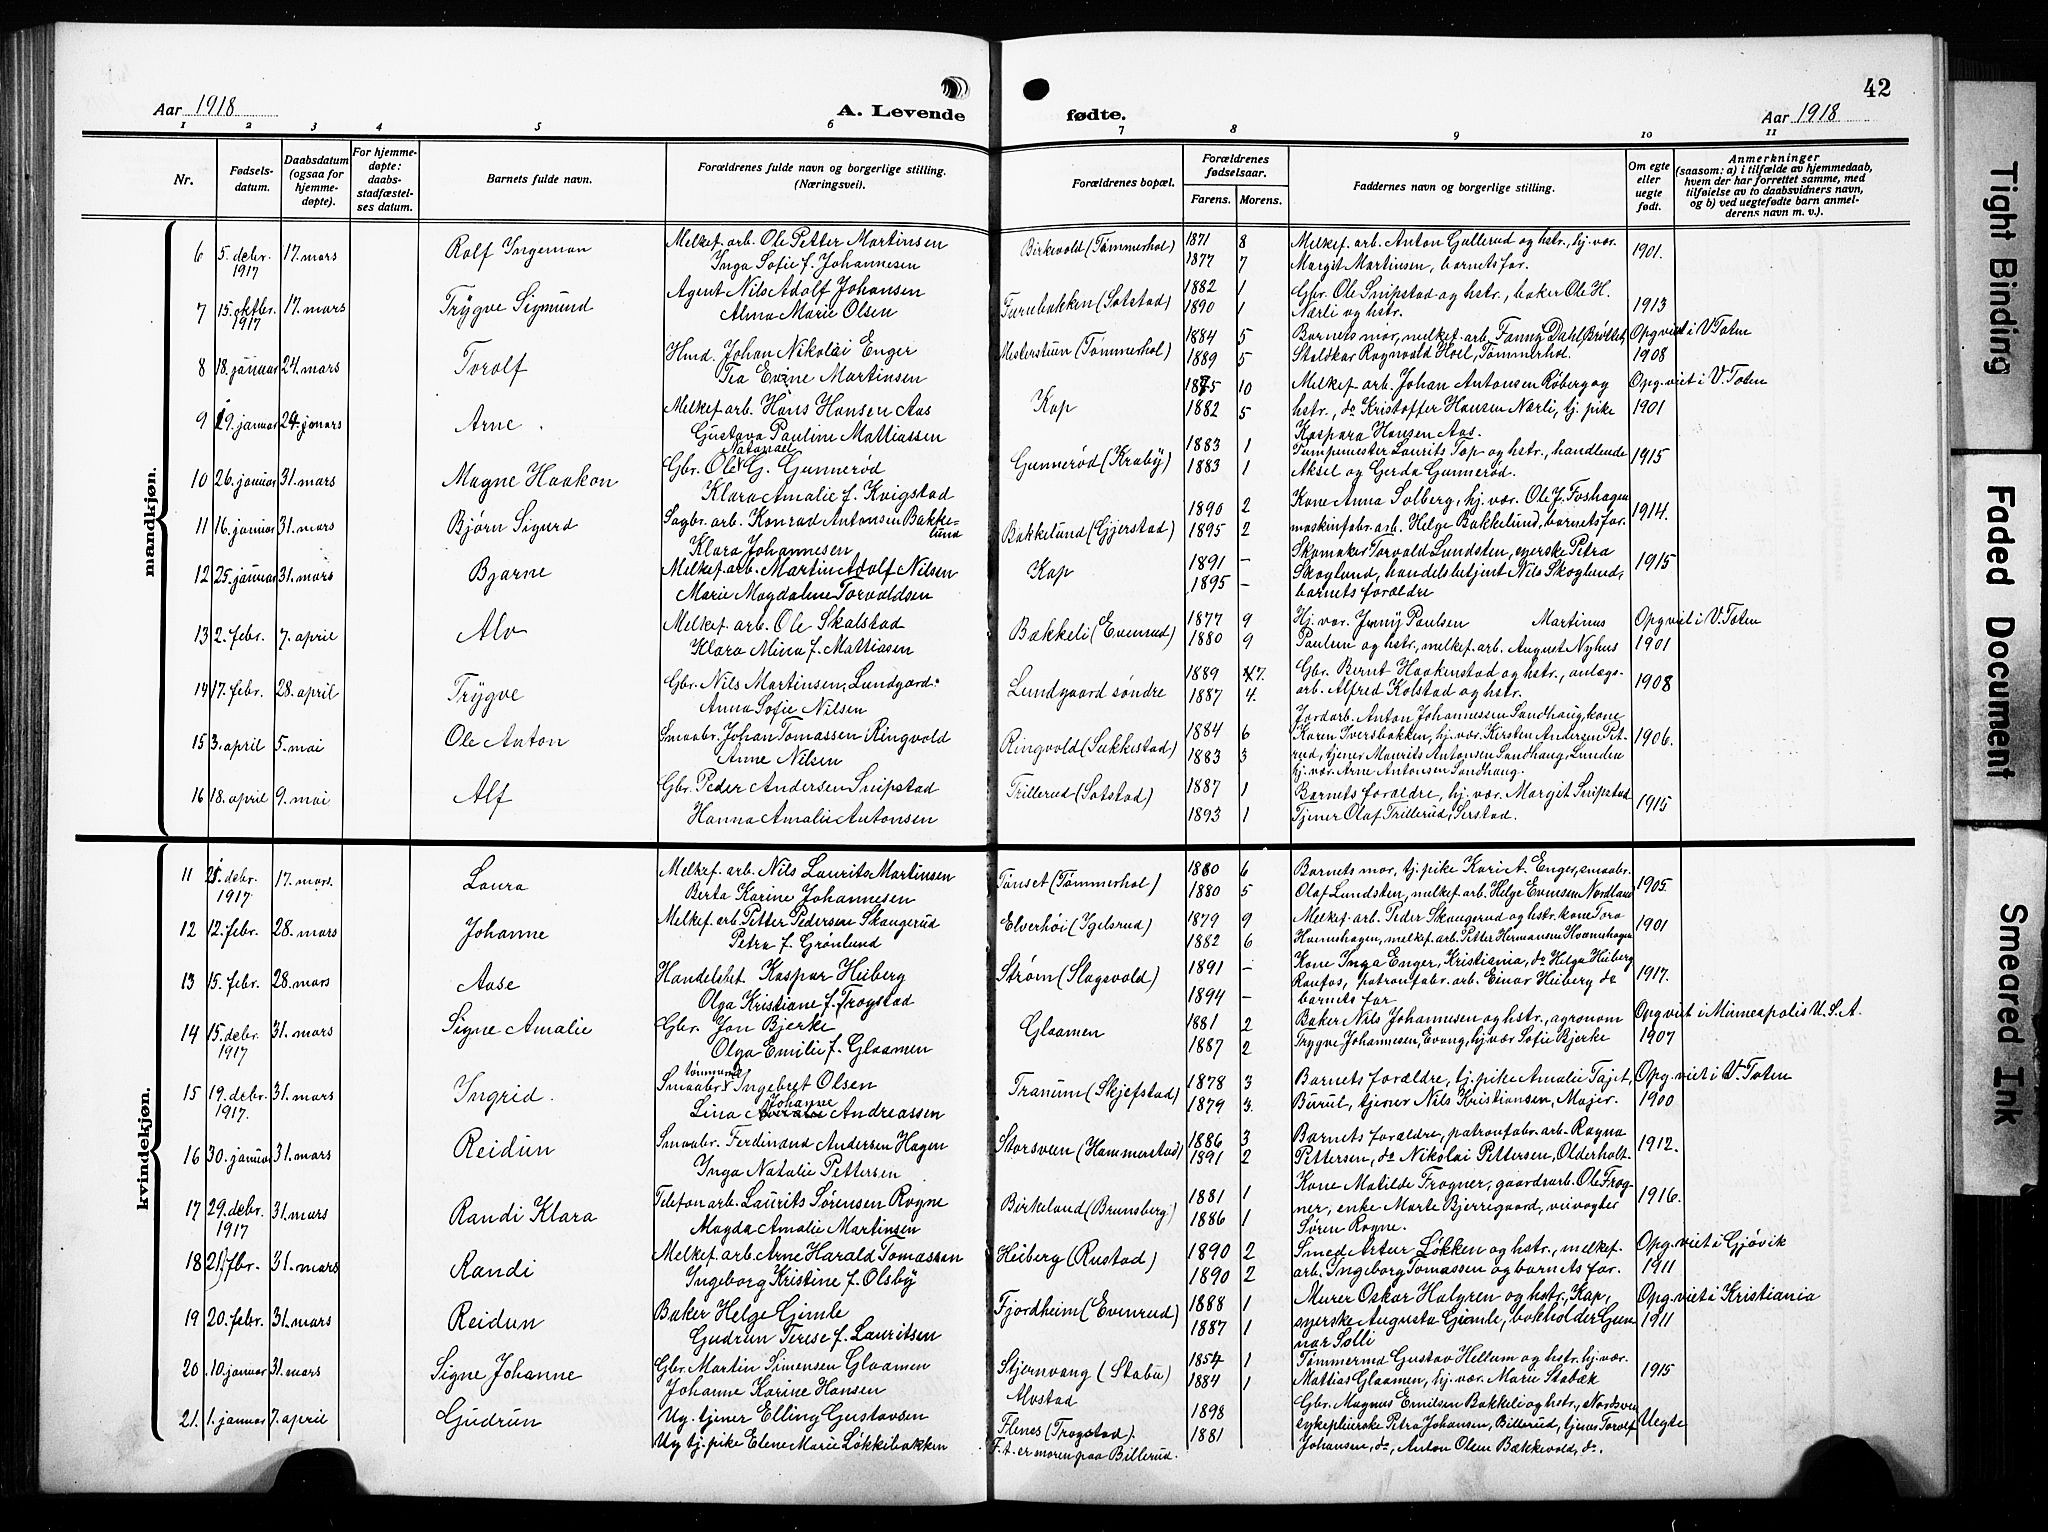 42
Aar 1918
A. Levende
fødte.
Aar 1918
1 2 3 4 5 6 7 8 9 10 11
Nr.
Fødsels-
datum.
Daabsdatum
(ogsaa for
hjemme-
døpte).
For hjemme-
døpte:
daabs-
stadfæstel-
ses datum.
Barnets fulde navn.
Forældrenes fulde navn og borgerlige stilling.
(Næringsvei).
Forældrenes bopæl.
Forældrenes
fødselsaar.
Farens. Morens.
Faddernes navn og borgerlige stilling.
Om egte
eller
uegte
født.
Anmerkninger
(saasom: a) i tilfælde av hjemmedaab,
hvem der har forrettet samme, med
tilføielse av to daabsvidners navn,
og b) ved uegtefødte barn anmel-
derens navn m. v.).
mandkjøn.
6 5. debr. 17. mars Rolf Ingeman Melkef. arb. Ole Petter Martinsen Birkevold (Tømmerhol) 1871 8 Melkef. arb. Anton Gallerud og hstr., hj. vær. 1901.
1917 Inga Sofie f. Johannesen 1877 7 Margit Martinsen, barnets far.
7 15. oktbr. 17. mars Trygve Sigmund Agent Nils Adolf Johansen Furubakken (Sotstad) 1882 1 Gbr. Ole Snipstad og hstr., baker Ole H. 1913
1917 Alma Marie Olsen 1890 1 Nærli og hstr.
8 18. januar 24. mars Torolf Hmd. Johan Nikolai Enger Mesterstuen (Tømmerhol) 1884 5 Barnets mor, melkef. arb. Fanny Dahl, Opg. viet i V. Toten
Tea Evine Martinsen 1889 5 Staldkar Rognvald Hoel, Tømmerhol. 1908
9 19. januar 24. mars Arne. Melkef. arb. Hans Hansen Aas Kap 1875 10 Melkef. arb. Johan Antonsen Røberg og Opg. viet i V. Toten
Gustava Pauline Mattiassen 1882 5 hstr., do Kristoffer Hansen Nærli, tj. pike 1901
Kaspara Hansen Aas.
10 26. januar 31. mars Magne Haakon Gbr. Ole Natanael G. Gunnerød Gunnerød (Kraby) 1883 1 Pumpemester Laurits Top og hstr., handlende 1915
Klara Amalie f. Kvigstad 1883 1 Aksel og Gerda Gunnerød.
11 16. januar 31. mars Bjørn Sigurd Sagbr. arb. Konrad Antonsen Bakke- Bakkelund (Gjerstad) 1890 2 Kone Anna Solberg, hj. vær. Ole J. Foshagen 1914.
lund
Klara Johannesen 1895 2 maskinfabr. arb. Helge Bakkelund, barnets far.
12 25. januar 31. mars Bjarne Melkef. arb. Martin Adolf Nilsen Kap 1891 – Skomaker Torvald Lundsten, syerske Petra 1915
Marie Magdalene Torvaldsen 1895 – Skoglund, handelsbetjent Nils Skoglund,
barnets forældre
13 2. febr. 7. april Alv Melkef. arb. Ole Skalstad Bakkeli (Evenrud) 1877 9 Hj. vær. Jenny Paulsen Martinus Opg viet i V. Toten
Klara Mina f. Mattiassen 1880 9 Paulsen og hstr., melkef. arb. August Nyhus 1901
14 17. febr. 28. april Trygve Gbr. Nils Martinsen, Lundgaard. Lundgaard søndre 1889 7. Gbr. Bernt Haakenstad og hstr., anlægs- 1908
Anna Sofie Nilsen 1887 4. arb. Alfred Kolstad og hstr.
15 3. april 5. mai Ole Anton Smaabr. Johan Tomassen Ringvold Ringvold (Sukkestad) 1884 6 Jordarb. Anton Johannessen Sandhaug, kone 1906.
Anne Nilsen 1883 3 Karen Iversbakken, hj. vær. Kirsten Andersen Pet-
rud, tjener Maurits Antonsen Sandhaug, Lunden
hj. vær. Arne Antonsen Sandhaug.
16 18. april 9. mai Alf Gbr. Peder Andersen Snipstad Trillerud (Sotstad) 1887 1 Barnets forældre, hj. vær. Margit Snipstad 1915
Hanna Amalie Antonsen 1893 1 Tjener Olaf Trillerud, Serstad.
kvindekjøn.
11 debr. 17. mars Laura Melkef. arb. Nils Laurits Martinsen Tonset (Tømmerhol) 1880 6 Barnets mor, tj. pike Kari A. Enger, smaabr. 1905.
1917 Berta Karine Johannesen 1880 5 Olaf Lundsten, melkef. arb. Helge Evensen Nordland
12 12. febr. 28. mars Johanne Melkef. arb. Petter Pedersen Skaugerud Elverhøi (Igelsrud) 1879 9 Melkef. arb. Peder Skaugerud og hstr. kone Tora 1901
Petra f. Grønlund 1882 6 Hoennhagen, melkef. arb. Petter Hermansen Hoennhagen
13 15. febr. 28. mars Aase Handelsbet Kaspar Heiberg Strøm (Slagsvold) 1891 – Kone Inga Enger, Kristiania, do Helga Heiberg 1917.
Olga Kristiane f. Frogstad 1894 – Raufos, patronfabr. arb. Einar Heiberg do
barnets far
14 15. debr. 31. mars Signe Amalie Gbr. Jon Bjerke Glaamen 1881 2 Baker Nils Johannesen og hstr., agronom Opg viet i Minneapolis U. S. A.
1917 Olga Emilie f. Glaamen 1887 2 Trygve Johannesen, Evang, hj. vær Sofie Bjerke 1907
15 19. debr. 31. mars Ingrid. Smaabr. tømmerm. Ingebret Olsen Tranum (Skjefstad) 1878 3 Barnets forældre, tj. pike Amalie Tajet, Opg. viet i V. Toten
1917. Lina Johanne Andreassen 1879 3. Burul, tjener Nils Kristiansen, Majer. 1900
16 30. januar 31. mars Reidun Smaabr. Ferdinand Andersen Hagen Storsveen (Hammerstad) 1886 3 Barnets forældre, patronfabr. arb. Ragna 1912.
Inga Natalie Pettersen 1891 2 Pettersen, do Nikolai Pettersen, Olderholt.
17 29. debr. 31. mars Randi Klara Telefon arb. Laurits Sørensen Rogne Birkelund (Brunsberg) 1881 1 Kone Matilde Frogner, gaardsarb. Ole Frog- 1916.
1917 Magda Amalie Martinsen 1886 1 ner, enke Marte Bjerregaard, veivogter
Søren Rogne.
18 21. fbr. 31. mars Randi Melkef. arb. Arne Harald Tomassen Heiberg (Rustad) 1890 2 Smed Artur Løkken og hstr., melkef. Opg. viet i Gjøvik
Ingeborg Kristine f. Olsby 1890 2 arb. Ingeborg Tomassen og barnets far. 1911
19 20. febr. 31. mars Reidun Baker Helge Gimle Fjordheim (Evenrud) 1888 1 Murer Oskar Halgren og hstr., Kap, Opg. viet i Kristiania
Gudrun Terese f. Lauritsen 1887 1 syerske Augusta Gimle, bokholder Gun- 1911
nar Solli
20 10. januar 31. mars Signe Johanne Gbr. Martin Simensen Glaamen Stjernvang (Stabu) 1854 1 Tømmermd Gustav Hellum og hstr. hj. vær. 1915
Johanne Karine Hansen Alvstad 1884 1 Mattias Glaamen, hj. vær. Marie Stabæk
21. 1. januar 7. april Gudrun Ug. tjener Elling Gustavsen Flenes (Frogstad). 1898 Gbr. Magnus Emilsen Bakkeli og hstr., Nordsveen Uegte
Ug tj. pike Elene Marie Løkkebakken F. t. er moren paa Billerud. 1881 sykepleierske Petra Johansen, Billerud, tjener Torolf
Johansen, do, Anton Olsen Bækkevold, do.
Tight Binding
Faded Document
Smeared Ink